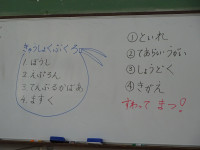 きゅうしょくぶくろ
1.ぼうし
2.えぷろん
3.てーぶるかばあ
4.ますく
①といれ
②てあらいうがい
③しょうどく
④きがえ
すわって まつ!